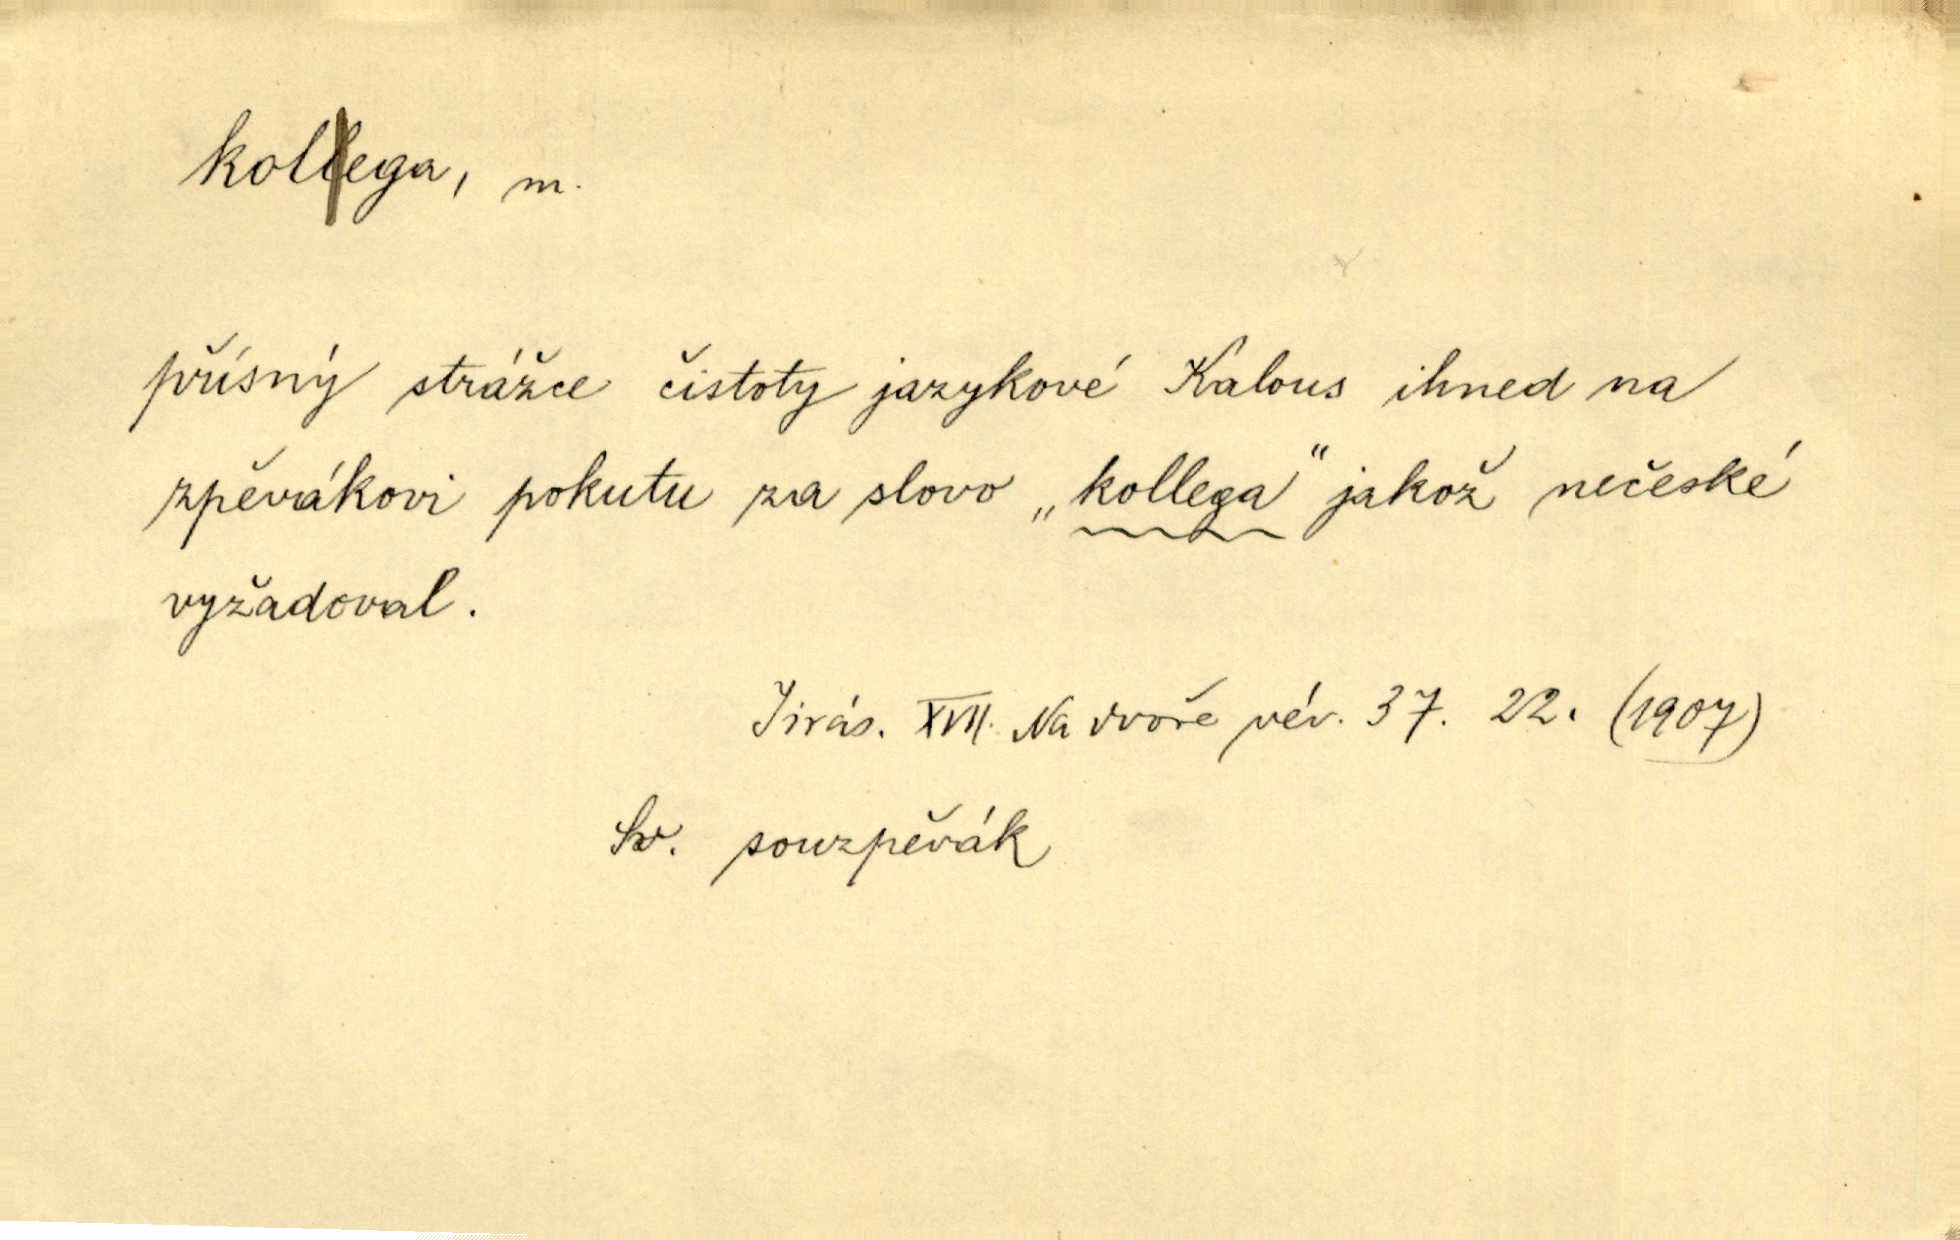 kollega, m.
přísný strážce čistoty jazykové Kalous ihned na
zpěvákovi pokutu za slovo „kollega" jakož nečeské
vyžadoval.
Jirás. XVII. Na dvoře vév. 37. 22. (1907)
Sv. souzpěvák